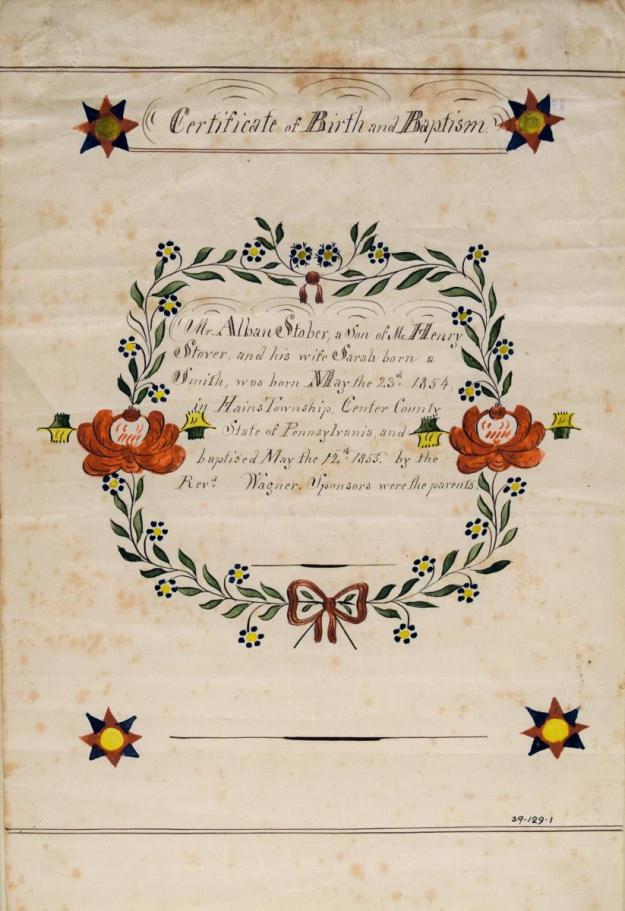 Certificate of Birth and Baptism.
Mr. Alban Stober, a Son of Mr. Henry
Stover, and his wife Sarah born a
Smith, was born May the 23d. 1854,
in Hains Township, Center County
State of Pennsylvania, and
baptised May the 12th. 1855. by the
Revd. Wagner. Sponsors were the parents
39-129-1